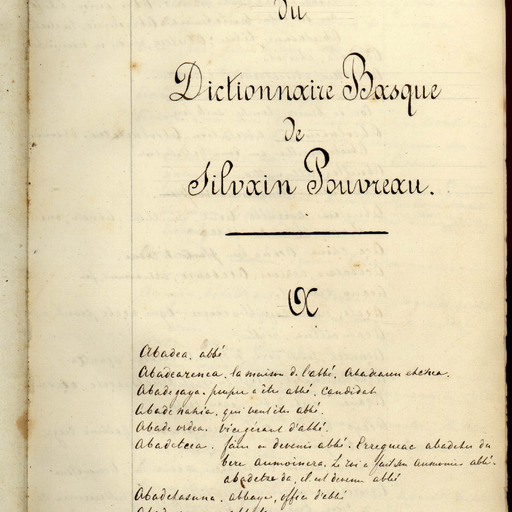 du
Dictionnaire Basque
de
Silvain Pouvreau.
A
Abadea. abbé
Abadearenea. la maison de l'abbé. Abadearen etchea.
Abadegaya. propre a être abbé. Candidat
Abadenahia. qui veut être abbé.
Abadeordea. vicegérant d'abbé.
Abadetcea. faire ou devenir abbé. Erreguiac abadetu du
bere aumoinera. Le roi a fait son aumonier abbé.
abadetu da, il est devenu abbé
Abadetasuna. abbaye, office d'abbé